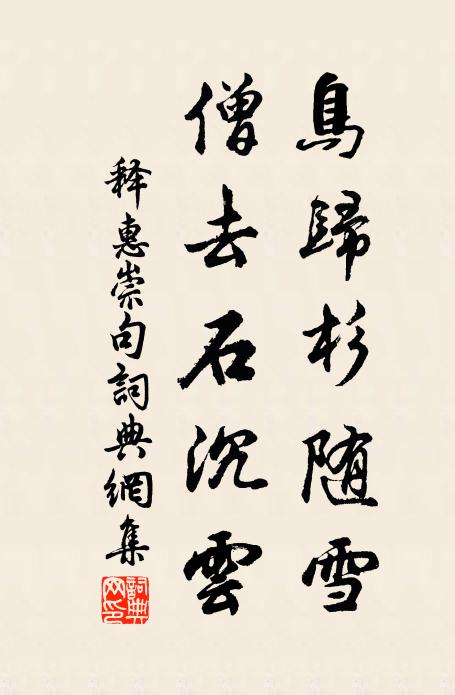 鳥歸杉随雪
僧去石沉雲
释惠崇句詞典網集
詞典网印